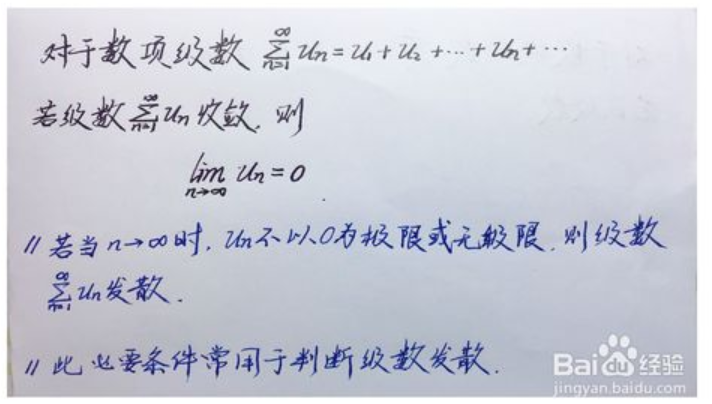 对于数项级数 ∑_{n=1}^{∞} Un = U1 + U2 + … + Un + …
若级数 ∑_{n=1}^{∞} Un 收敛, 则
lim_{n→∞} Un = 0 .
// 若当 n→∞ 时, Un 不以 0 为极限或无极限, 则级数
∑_{n=1}^{∞} Un 发散.
// 此必要条件常用于判断级数发散.
Baidu经验
jingyan.baidu.com